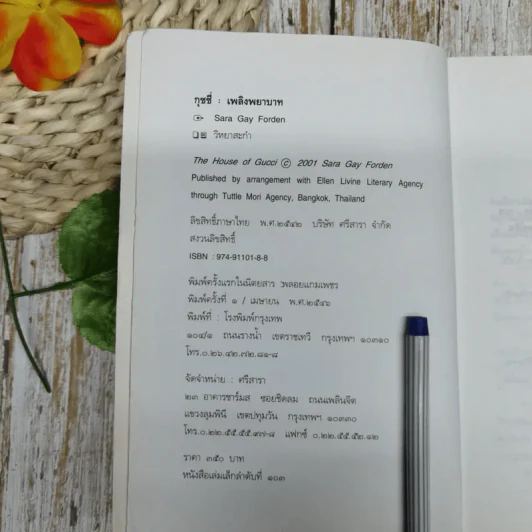 กุชชี่ : เพลิงพยาบาท
Sara Gay Forden
วิทยาสะกำ
The House of Gucci © 2001 Sara Gay Forden
Published by arrangement with Ellen Livine Literary Agency
through Tuttle Mori Agency, Bangkok, Thailand
ลิขสิทธิ์ภาษาไทย พ.ศ.๒๕๔๒ บริษัท ศรีสารา จำกัด
สงวนลิขสิทธิ์
ISBN : 974-91101-8-8
พิมพ์ครั้งแรกในนิตยสาร พลอยแกมเพชร
พิมพ์ครั้งที่ ๑ / เมษายน พ.ศ.๒๕๔๖
พิมพ์ที่ : โรงพิมพ์กรุงเทพ
๑๐๙/๑ ถนนรางน้ำ เขตราชเทวี กรุงเทพฯ ๑๐๓๑๐
โทร.๐.๒๖.๔๒.๗๒.๘๑-๘
จัดจำหน่าย : ศรีสารา
๒๓ อาคารชาร์มส ซอยชิดลม ถนนเพลินจิต
แขวงลุมพินี เขตปทุมวัน กรุงเทพฯ ๑๐๓๓๐
โทร.๐.๒๒.๕๕.๕๕.๙๗-๘ แฟกซ์ ๐.๒๒.๕๕.๕๒.๑๒
ราคา ๓๕๐ บาท
หนังสือเล่มเล็กลำดับที่ ๑๐๓